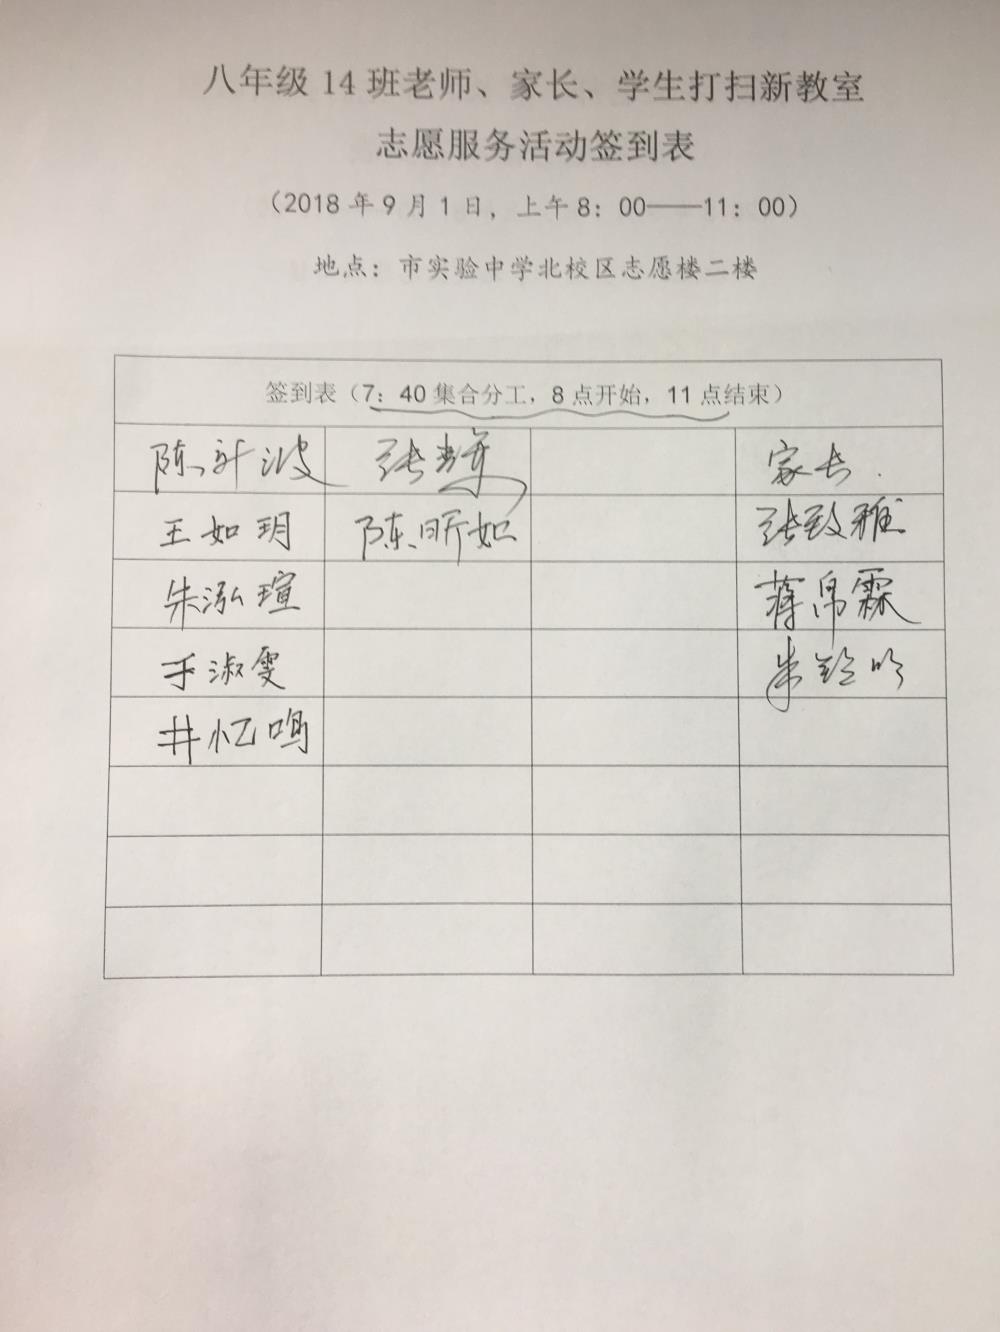 八年级 14 班老师、家长、学生打扫新教室
志愿服务活动签到表
（2018 年 9 月 1 日，上午 8：00——11：00）
地点：市实验中学北校区志愿楼二楼
签到表（7：40 集合分工，8 点开始，11 点结束）
陈 波 张 家长
王如玥 陈昕如 张致雅
朱泓瑄 蒋帛霖
于淑雯 朱
井忆鸣